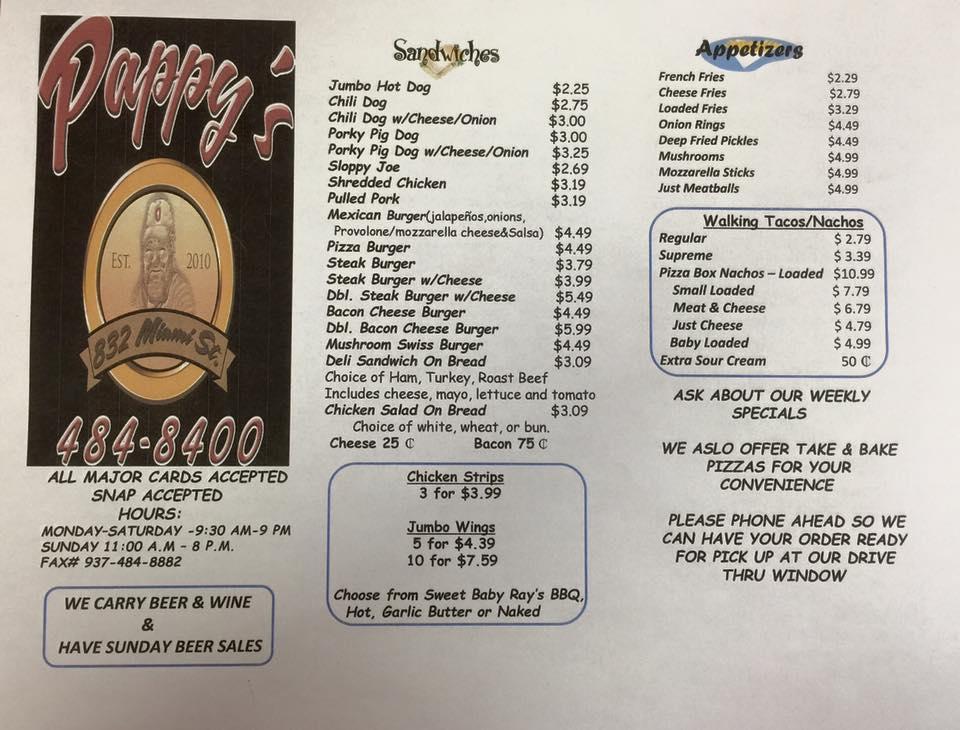 Pappy's
EST. 2010
832 Miami St.
484-8400
ALL MAJOR CARDS ACCEPTED
SNAP ACCEPTED
HOURS:
MONDAY-SATURDAY -9:30 AM-9 PM
SUNDAY 11:00 A.M - 8 P.M.
FAX# 937-484-8882
WE CARRY BEER & WINE
&
HAVE SUNDAY BEER SALES
Sandwiches
Jumbo Hot Dog $2.25
Chili Dog $2.75
Chili Dog w/Cheese/Onion $3.00
Porky Pig Dog $3.00
Porky Pig Dog w/Cheese/Onion $3.25
Sloppy Joe $2.69
Shredded Chicken $3.19
Pulled Pork $3.19
Mexican Burger(jalapeños,onions,
Provolone/mozzarella cheese&Salsa) $4.49
Pizza Burger $4.49
Steak Burger $3.79
Steak Burger w/Cheese $3.99
Dbl. Steak Burger w/Cheese $5.49
Bacon Cheese Burger $4.49
Dbl. Bacon Cheese Burger $5.99
Mushroom Swiss Burger $4.49
Deli Sandwich On Bread $3.09
Choice of Ham, Turkey, Roast Beef
Includes cheese, mayo, lettuce and tomato
Chicken Salad On Bread $3.09
Choice of white, wheat, or bun.
Cheese 25 ₵ Bacon 75 ₵
Chicken Strips
3 for $3.99
Jumbo Wings
5 for $4.39
10 for $7.59
Choose from Sweet Baby Ray's BBQ,
Hot, Garlic Butter or Naked
Appetizers
French Fries $2.29
Cheese Fries $2.79
Loaded Fries $3.29
Onion Rings $4.49
Deep Fried Pickles $4.49
Mushrooms $4.99
Mozzarella Sticks $4.99
Just Meatballs $4.99
Walking Tacos/Nachos
Regular $ 2.79
Supreme $ 3.39
Pizza Box Nachos – Loaded $10.99
Small Loaded $ 7.79
Meat & Cheese $ 6.79
Just Cheese $ 4.79
Baby Loaded $ 4.99
Extra Sour Cream 50 ₵
ASK ABOUT OUR WEEKLY
SPECIALS
WE ASLO OFFER TAKE & BAKE
PIZZAS FOR YOUR
CONVENIENCE
PLEASE PHONE AHEAD SO WE
CAN HAVE YOUR ORDER READY
FOR PICK UP AT OUR DRIVE
THRU WINDOW